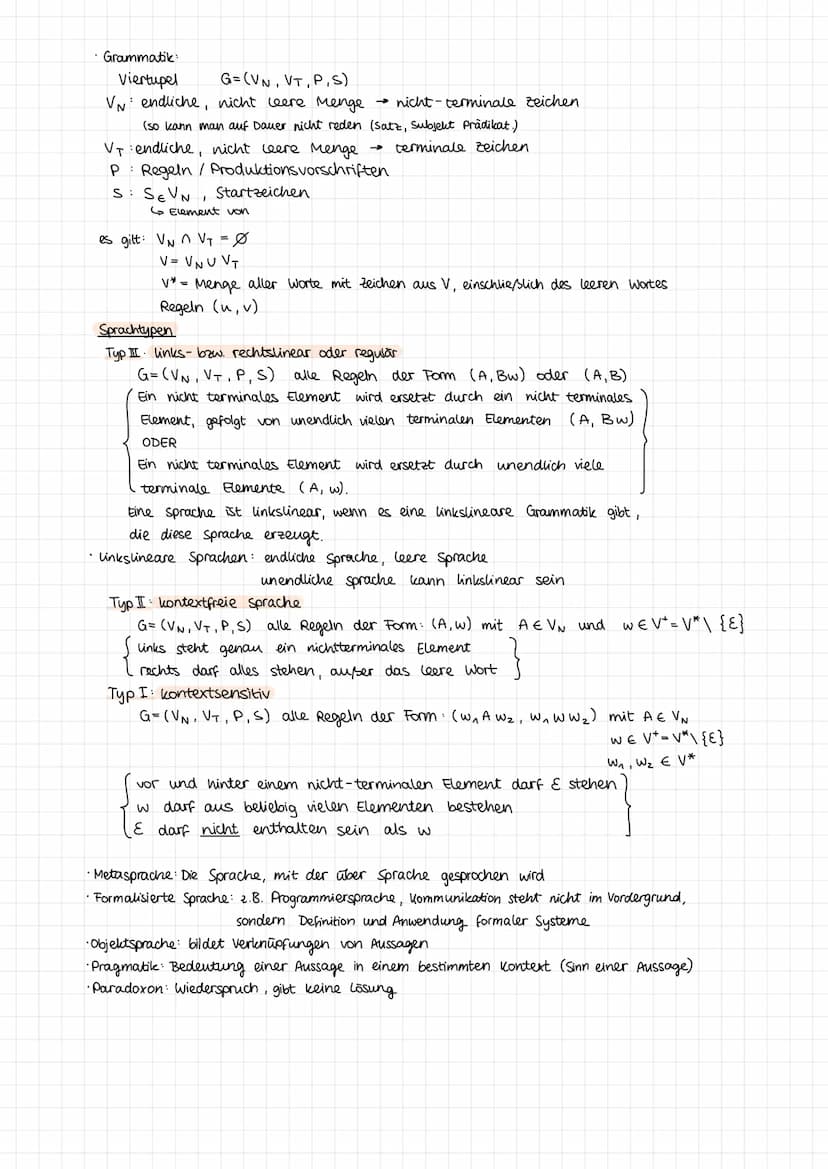 · Grammatik:
Viertupel G=(V_N, V_T, P, S)
V_N: endliche, nicht leere Menge → nicht-terminale Zeichen
(so kann man auf Dauer nicht reden (Satz, Subjekt Prädikat)
V_T: endliche, nicht leere Menge → terminale Zeichen
P : Regeln / Produktionsvorschriften
S : S ∈ V_N, Startzeichen
↳ Element von
es gilt: V_N ∩ V_T = ∅
V = V_N ∪ V_T
V* = Menge aller Worte mit Zeichen aus V, einschließlich des leeren Wortes
Regeln (u, v)
Sprachtypen
Typ III: links- bzw. rechtslinear oder regulär
G=(V_N, V_T, P, S) alle Regeln der Form (A, Bw) oder (A, B)
Ein nicht terminales Element wird ersetzt durch ein nicht terminales
Element, gefolgt von unendlich vielen terminalen Elementen (A, Bw)
ODER
Ein nicht terminales Element wird ersetzt durch unendlich viele
terminale Elemente (A, w).
Eine Sprache ist linkslinear, wenn es eine linkslineare Grammatik gibt,
die diese Sprache erzeugt.
· linkslineare Sprachen: endliche Sprache, leere Sprache
unendliche Sprache kann linkslinear sein
Typ II: kontextfreie Sprache
G=(V_N, V_T, P, S) alle Regeln der Form: (A, w) mit A ∈ V_N und w ∈ V⁺ = V* \ {ε}
links steht genau ein nichtterminales Element
rechts darf alles stehen, außer das leere Wort
Typ I: kontextsensitiv
G=(V_N, V_T, P, S) alle Regeln der Form: (w₁ A w₂, w₁ w w₂) mit A ∈ V_N
w ∈ V⁺ = V* \ {ε}
w₁, w₂ ∈ V*
vor und hinter einem nicht-terminalen Element darf ε stehen
w darf aus beliebig vielen Elementen bestehen
ε darf nicht enthalten sein als w
· Metasprache: Die Sprache, mit der über Sprache gesprochen wird
· Formalisierte Sprache: z.B. Programmiersprache, Kommunikation steht nicht im Vordergrund,
sondern Definition und Anwendung formaler Systeme
· Objektsprache: bildet Verknüpfungen von Aussagen
· Pragmatik: Bedeutung einer Aussage in einem bestimmten Kontext (Sinn einer Aussage)
· Paradoxon: Wiederspruch, gibt keine Lösung